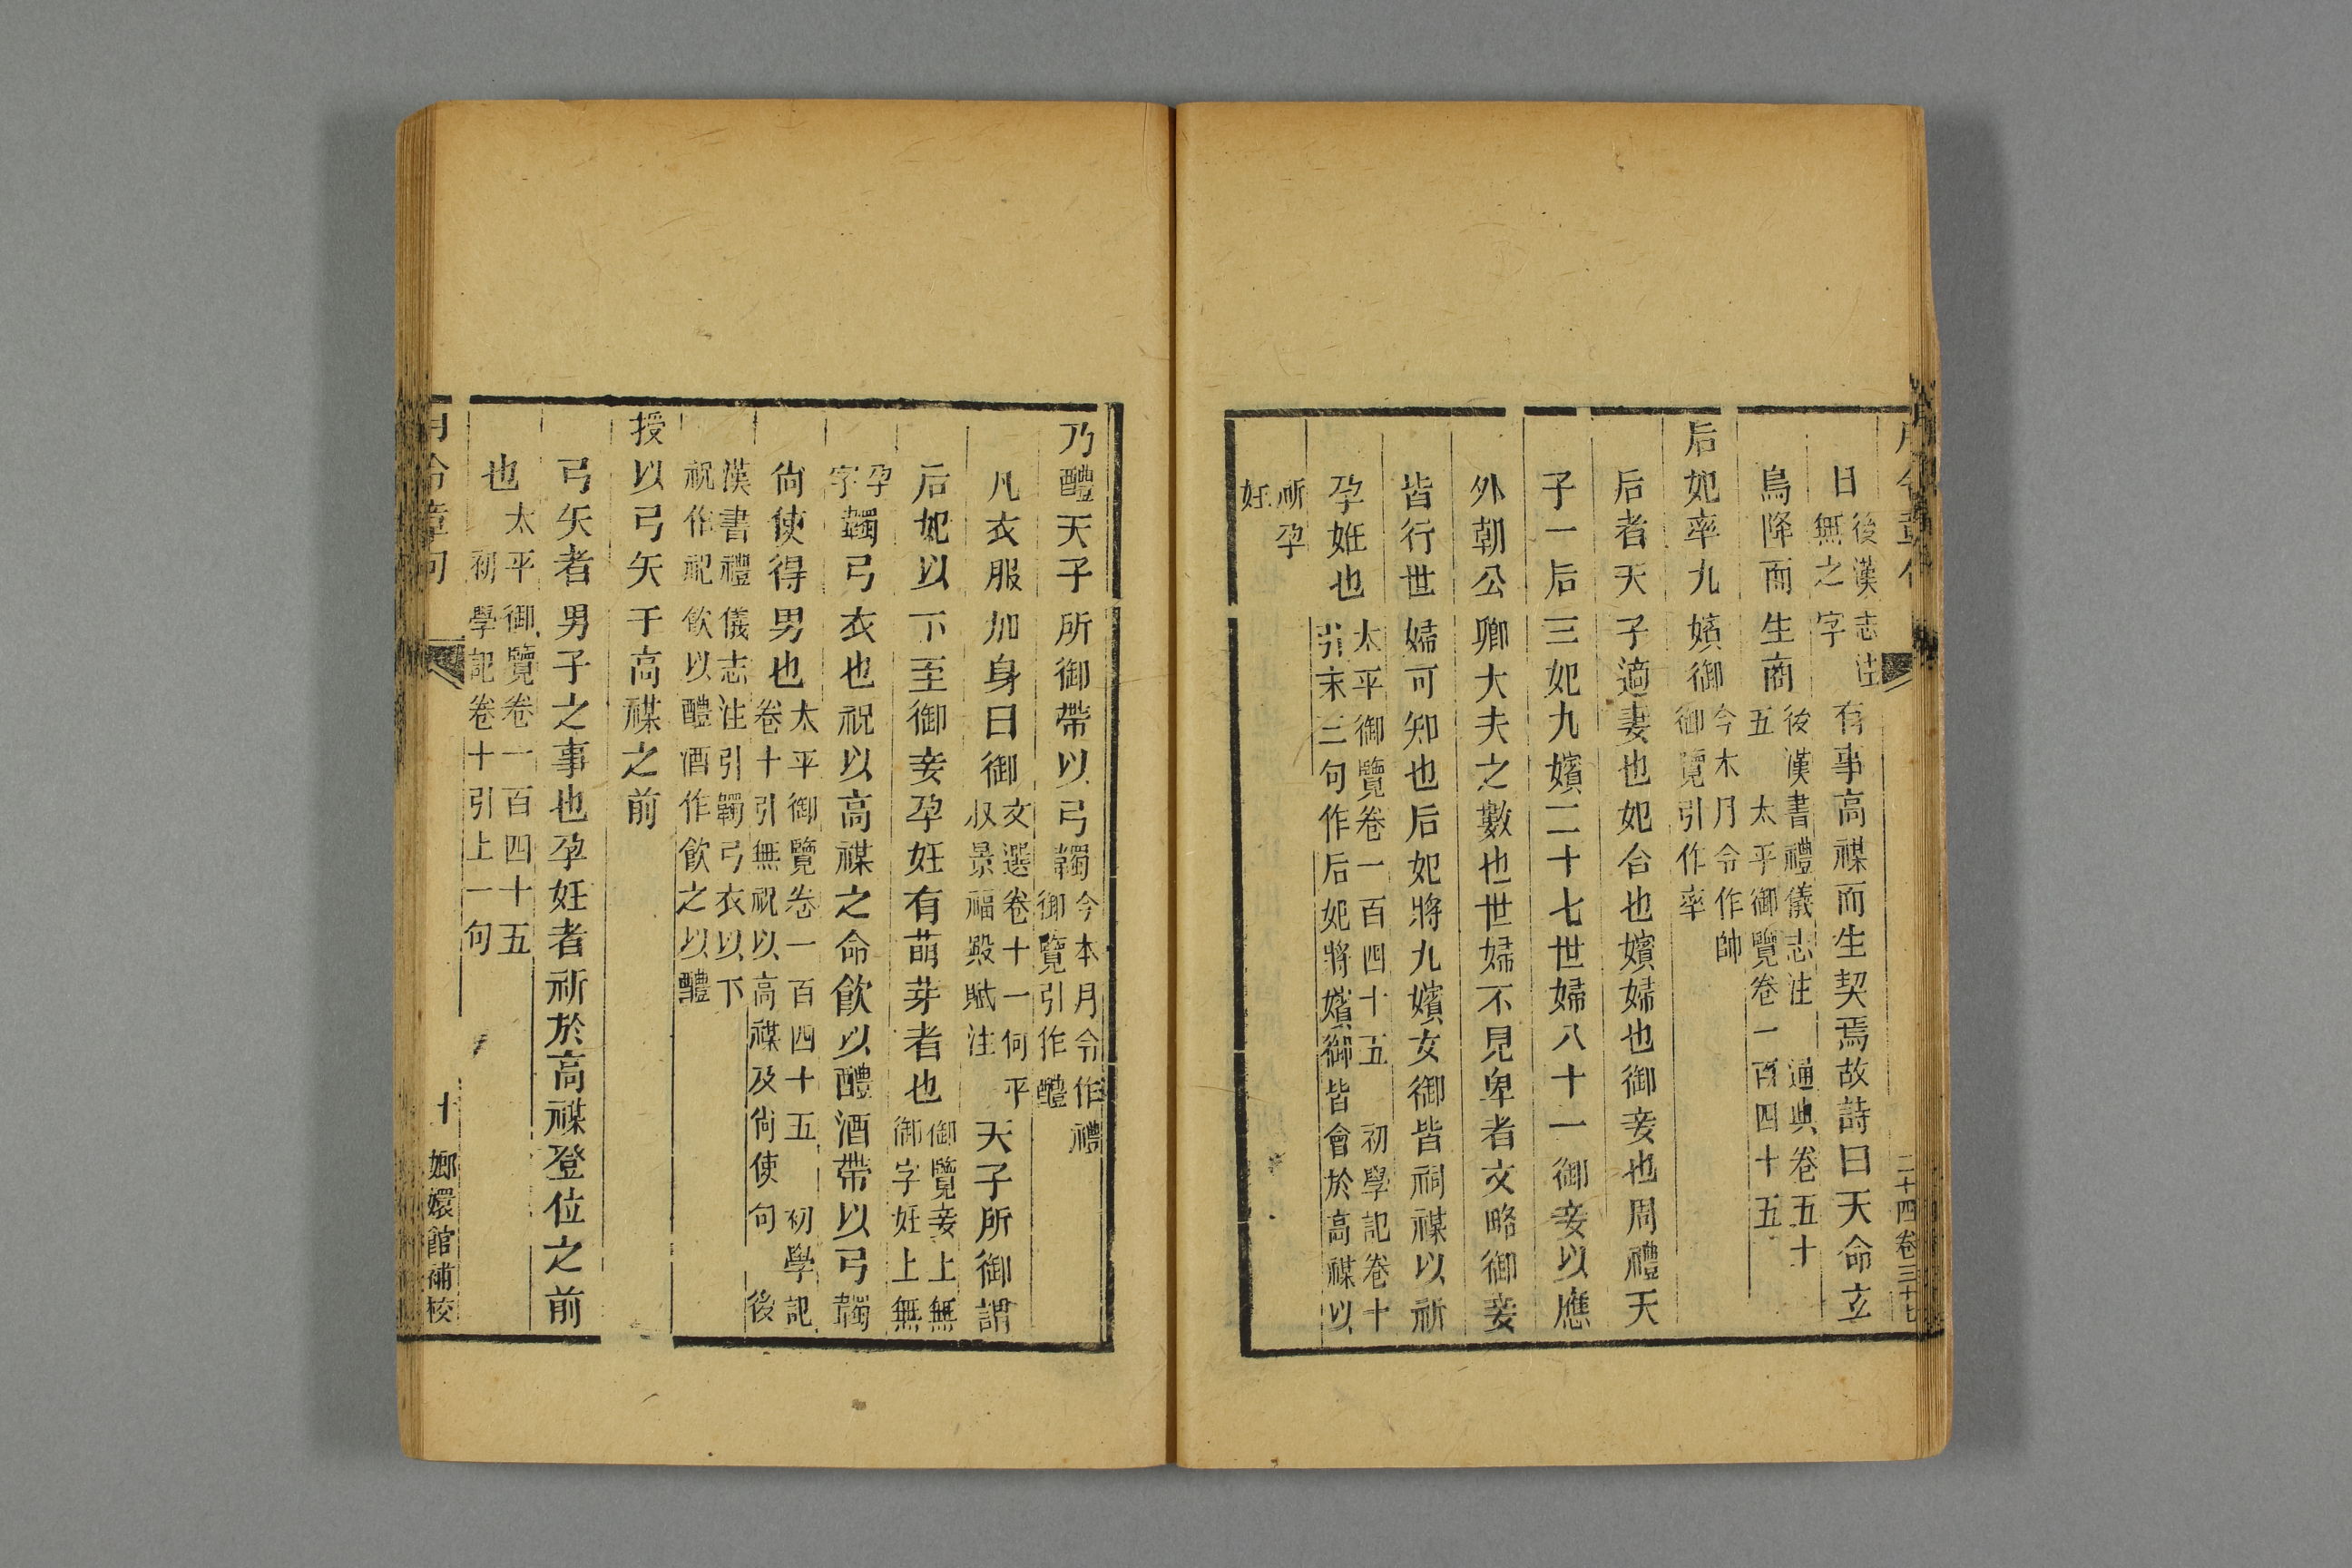 二十四卷三十七
日後漢志注無之字有事高禖而生契焉故詩曰天命玄
鳥降而生商後漢書禮儀志注 通典卷五十五 太平御覽卷一百四十五
后妃率九嬪御今木月令作帥御覽引作率
后者天子適妻也妃合也嬪婦也御妾也周禮天
子一后三妃九嬪二十七世婦八十一御妾以應
外朝公卿大夫之數也世婦不見卑者文略御妾
皆行世婦可知也后妃將九嬪女御皆祠禖以祈
孕姙也太平御覽卷一百四十五 初學記卷十引末三句作后妃將嬪御皆會於高禖以
祈孕妊
乃醴天子所御帶以弓韣今本月令作禮御覽引作醴
凡衣服加身曰御文選卷十一何平叔景福殿賦注天子所御謂
后妃以下至御妾孕妊有萌芽者也御覽妾上無御字妊上無
孕字韣弓衣也祝以高禖之命飮以醴酒帶以弓韣
尙使得男也太平御覽卷一百四十五 初學記卷十引無祝以高禖及尙使句 後
漢書禮儀志注引韣弓衣以下祝作祀飮以醴酒作飮之以醴
授以弓矢于高禖之前
弓矢者男子之事也孕妊者祈於高禖登位之前
也太平御覽卷一百四十五初學記卷十引上一句
月令章句 十 嫏嬛館補校